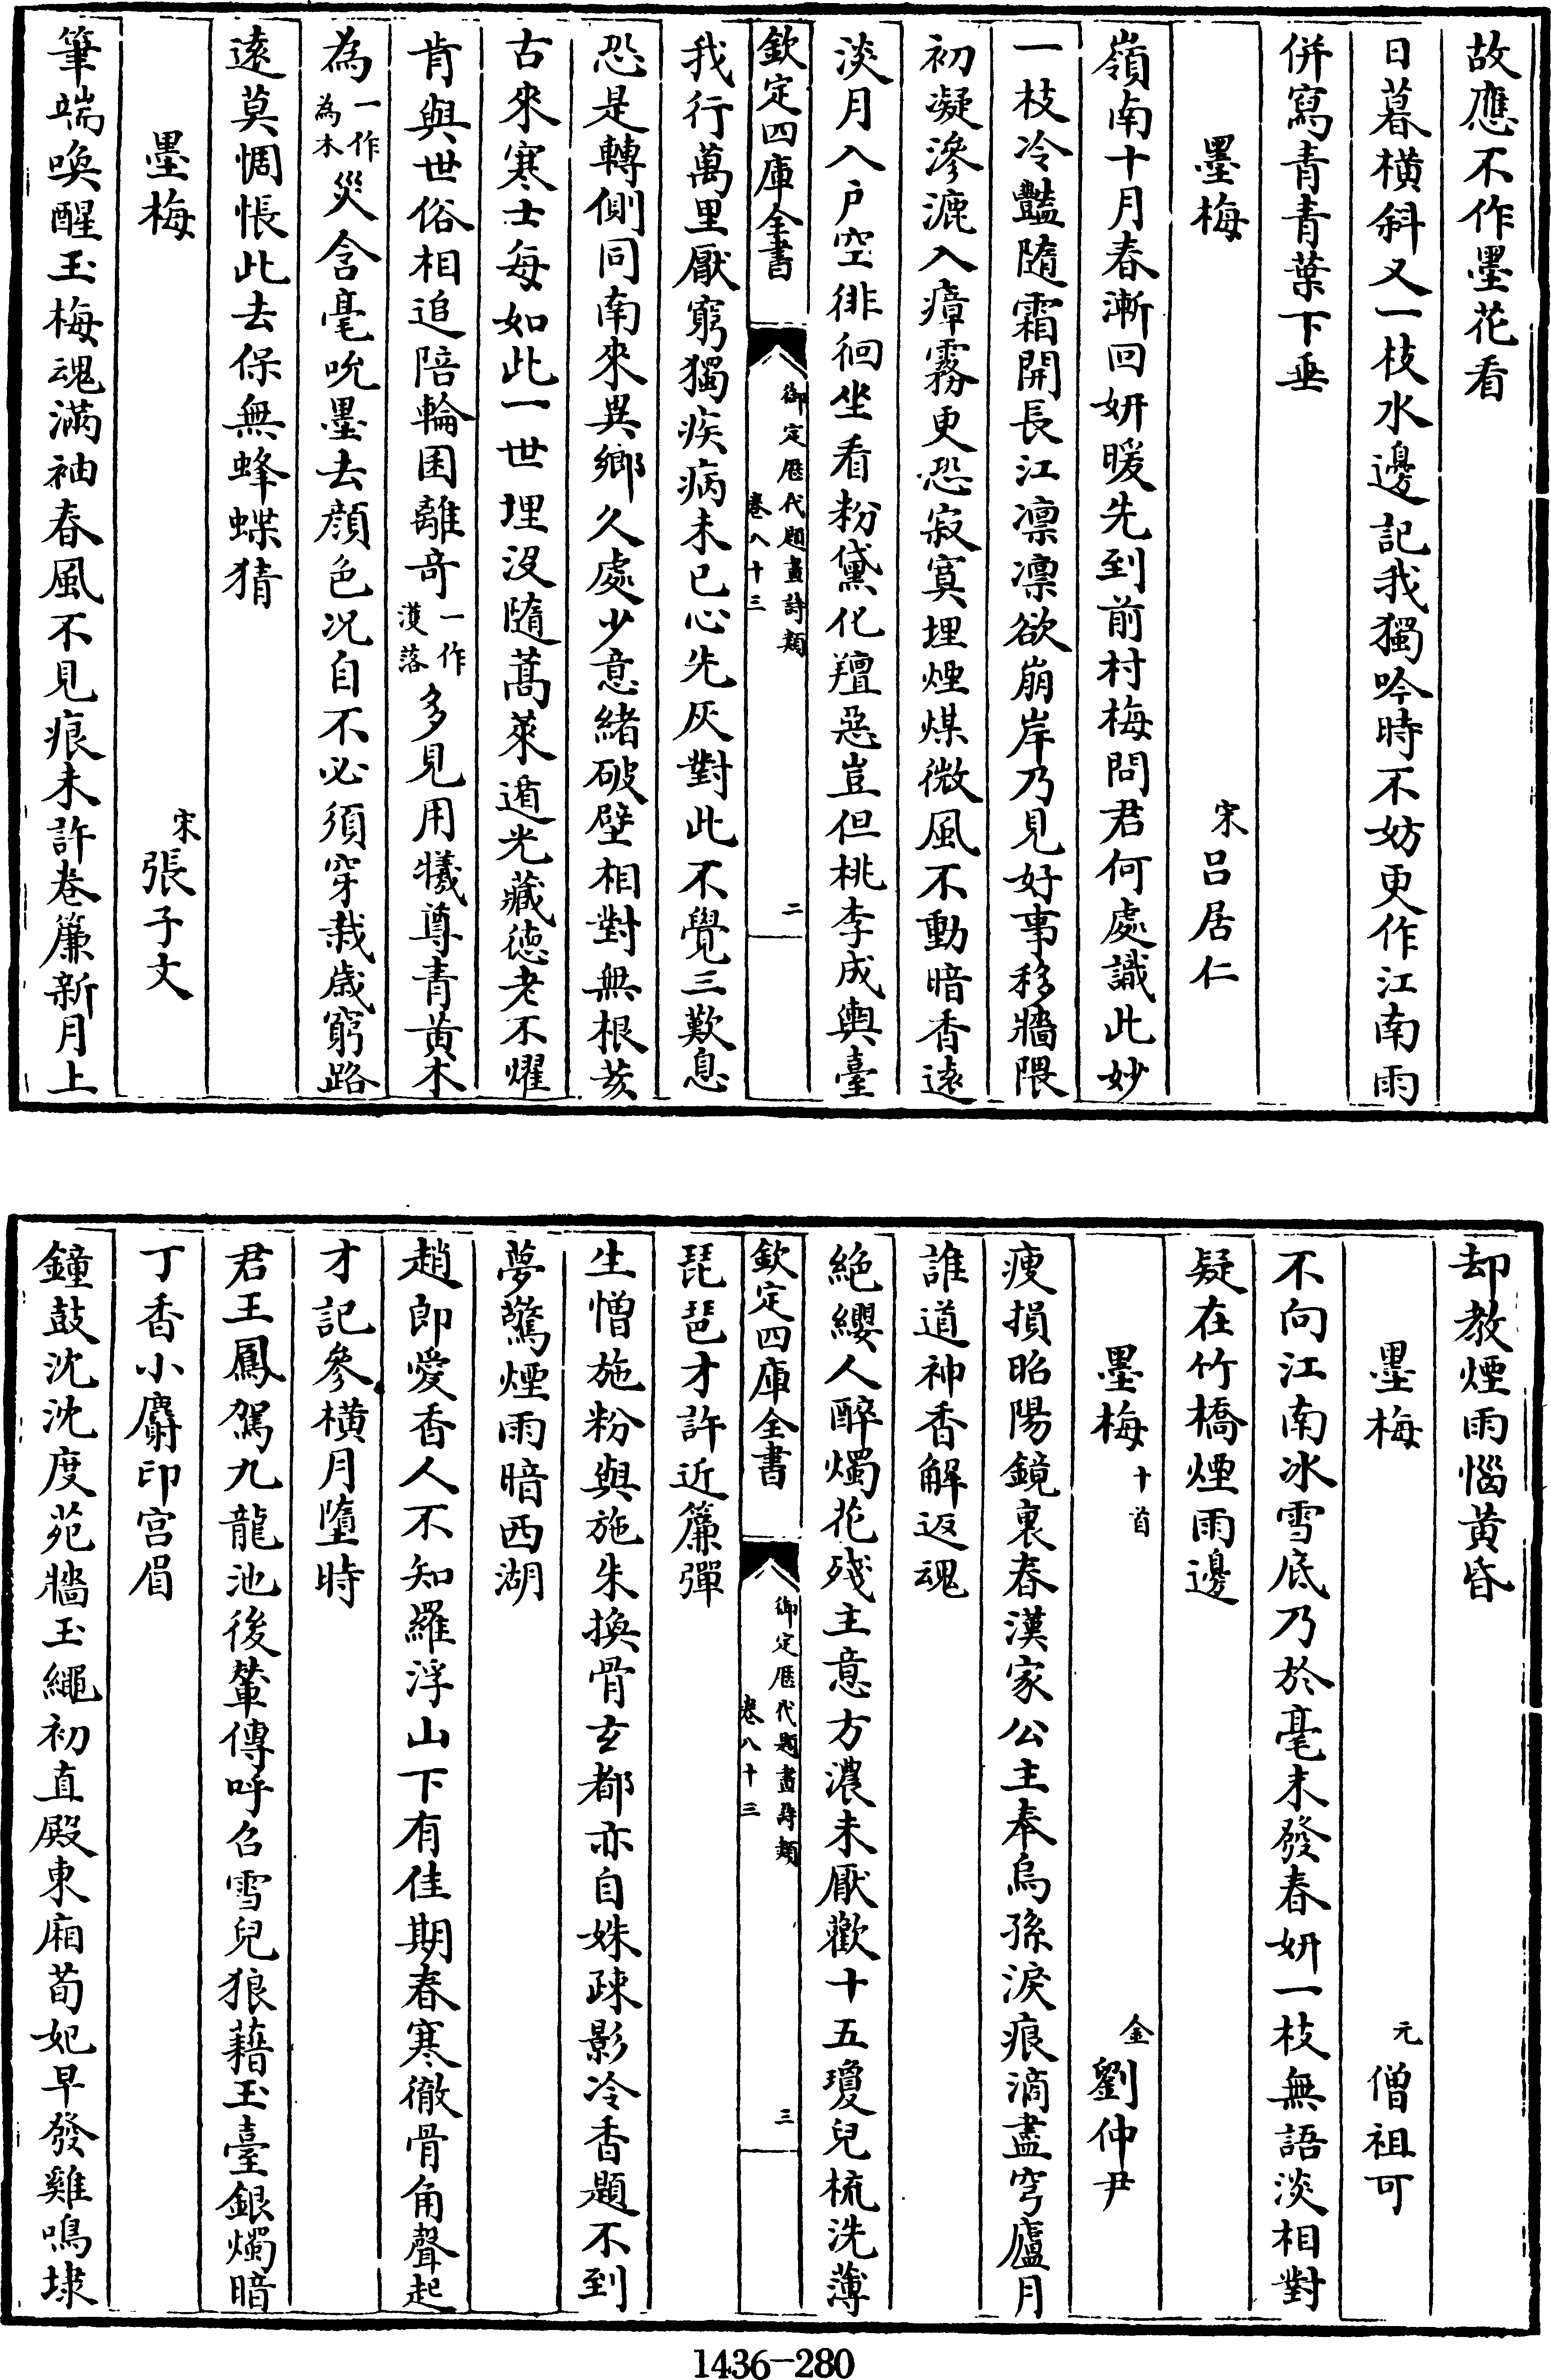 故應不作墨花看
日暮橫斜又一枝水邊記我獨吟時不妨更作江南雨
併寫青青葉下垂
墨梅 宋吕居仁
嶺南十月春漸回妍暖先到前村梅問君何處識此妙
一枝冷豔隨霜開長江凛凛欲崩岸乃見好事移牆隈
初凝滲漉入瘴霧更恐寂寞埋煙煤微風不動暗香逺
淡月入户空徘徊坐看粉黛化羶惡豈但桃李成輿臺
欽定四庫全書 御定歴代題畫詩類 卷八十三 二
我行萬里厭窮獨疾病未已心先灰對此不覺三歎息
恐是轉側同南來異鄉久處少意緒破壁相對無根荄
古來寒士每如此一世埋沒隨蒿萊遁光藏德老不耀
肯與世俗相追陪輪囷離竒一作濩落多見用犧尊青黄木
為一作為木災含毫吮墨去顔色况自不必須穿栽歲窮路
逺莫惆悵此去保無蜂蝶猜
墨梅 宋張子文
筆端喚醒玉梅魂滿袖春風不見痕未許卷簾新月上
却教煙雨惱黄昏
墨梅 元僧祖可
不向江南冰雪底乃於毫末發春妍一枝無語淡相對
疑在竹橋煙雨邊
墨梅十首 金劉仲尹
瘦損昭陽鏡裏春漢家公主奉烏孫淚痕滴盡穹廬月
誰道神香解返魂
絶纓人醉燭花殘主意方濃未厭歡十五瓊兒梳洗薄
欽定四庫全書 御定歴代題畫詩類 卷八十三 三
琵琶才許近簾彈
生憎施粉與施朱換骨玄都亦自姝疎影冷香題不到
夢驚煙雨暗西湖
趙郎愛香人不知羅浮山下有佳期春寒徹骨角聲起
才記參橫月墮時
君王鳳駕九龍池後輦傳呼召雪兒狼藉玉臺銀燭暗
丁香小麝印宫眉
鐘鼓沈沈度苑牆玉繩初直殿東廂荀妃早發雞鳴埭
1436-280